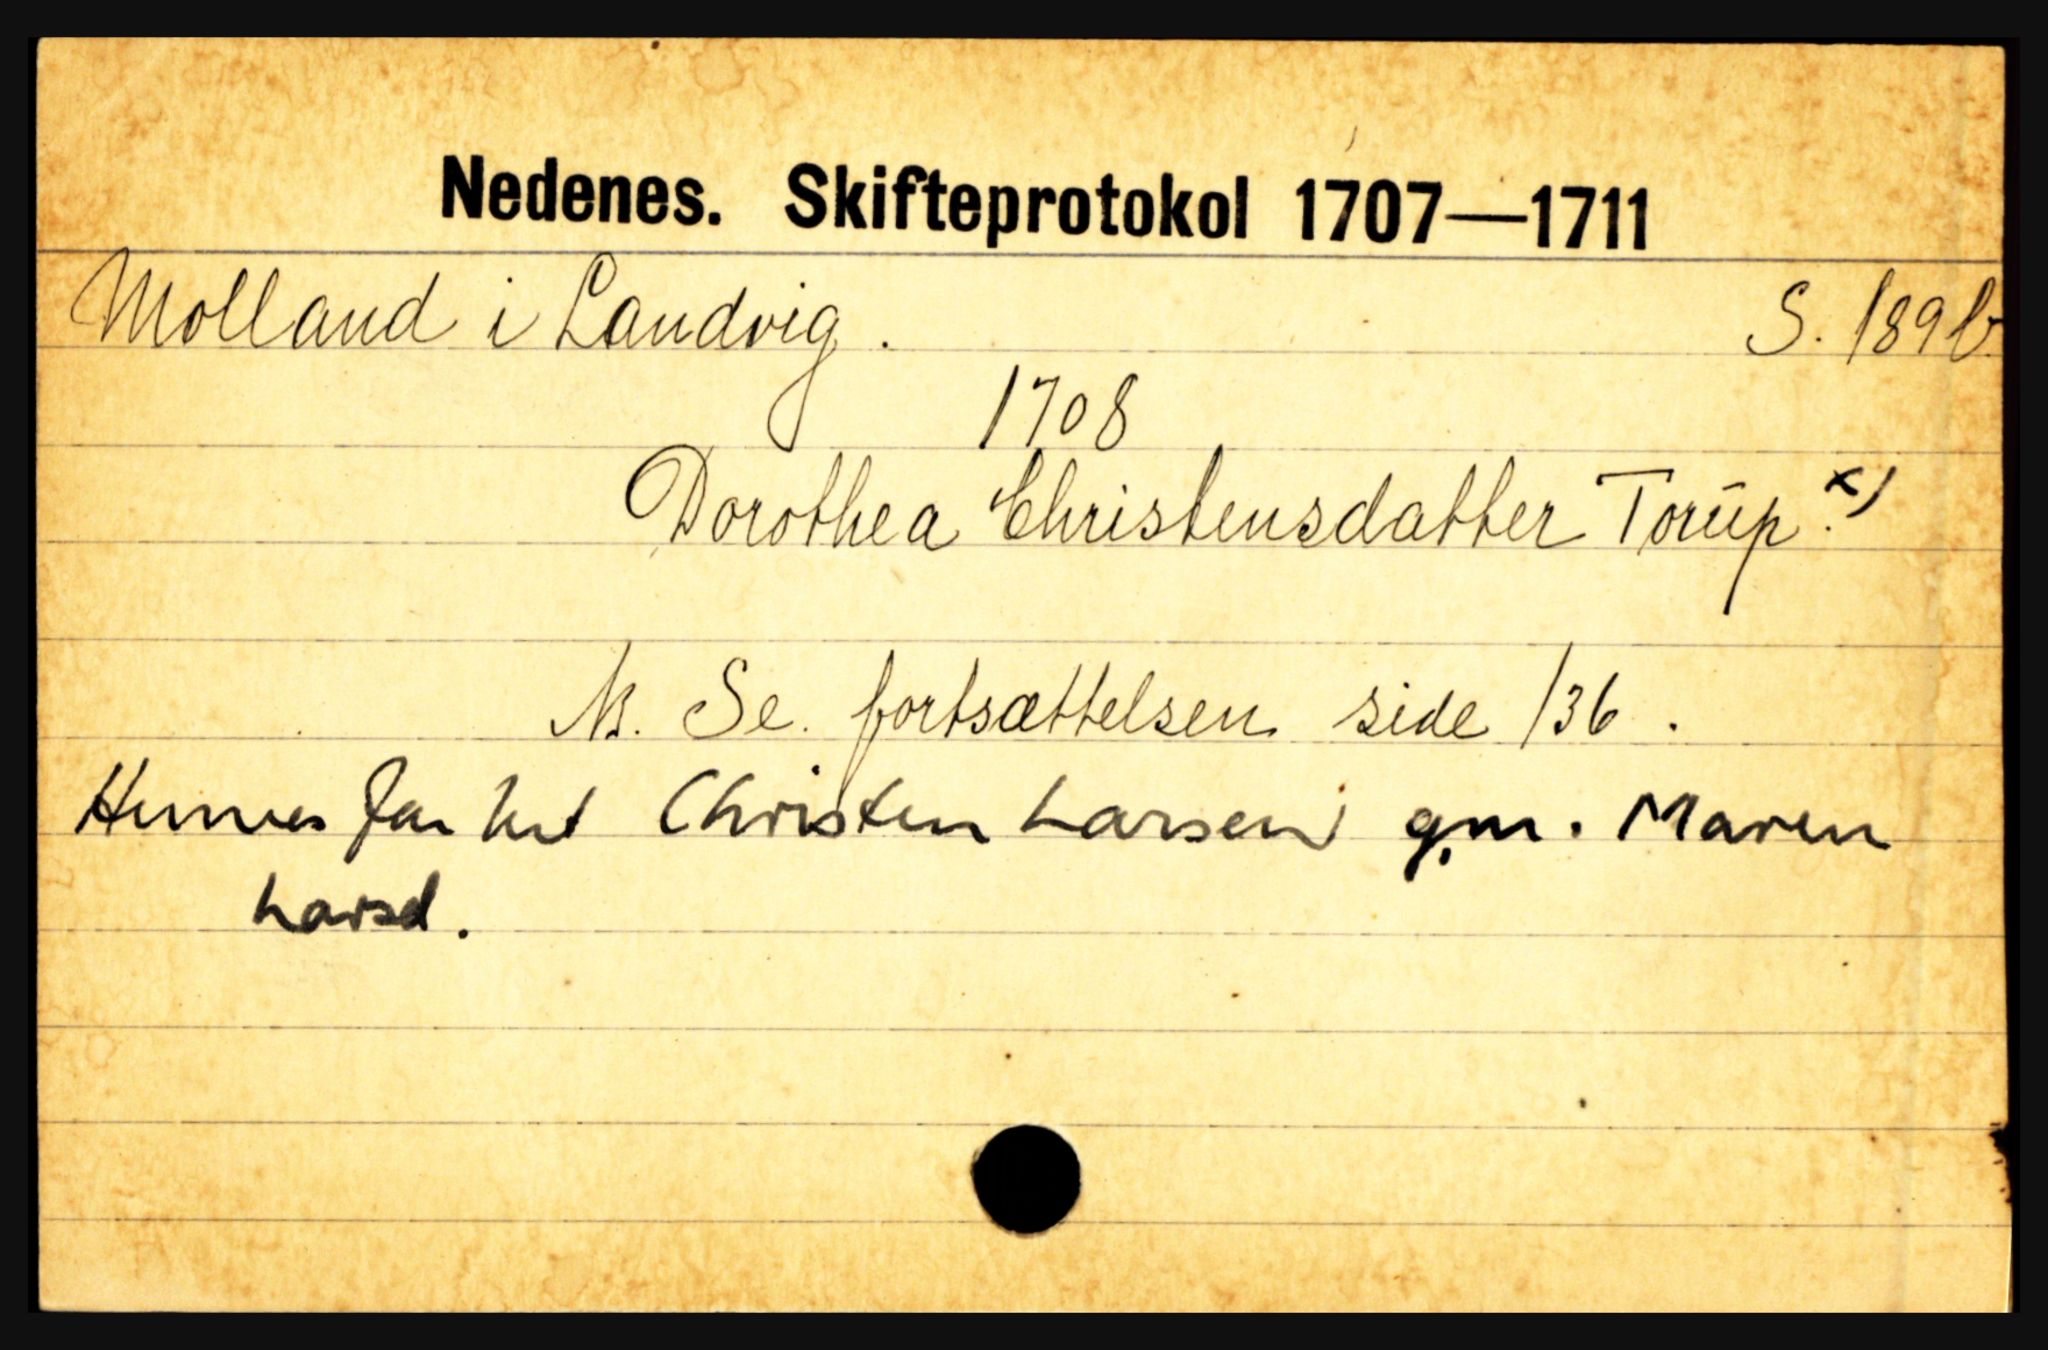 Nedenes. Skifteprotokol 1707—1711
Molland i Landvig. S. 189b.
1708
Dorothea Christensdatter Torup. x)
NB. Se fortsættelsen side 136.
Hennes far het Christen Larsen gm. Maren
Larsd.